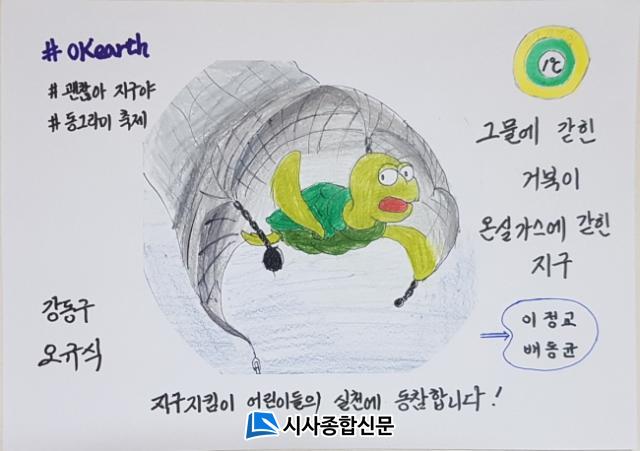 # OKearth
# 괜찮아 지구야
# 동그라미 축제
1℃
그물에 갇힌
거북이
온실가스에 갇힌
지구
강동구
오규식
이정교
배동균
지구지킴이 어린이들의 실천에 동참합니다!
시사종합신문